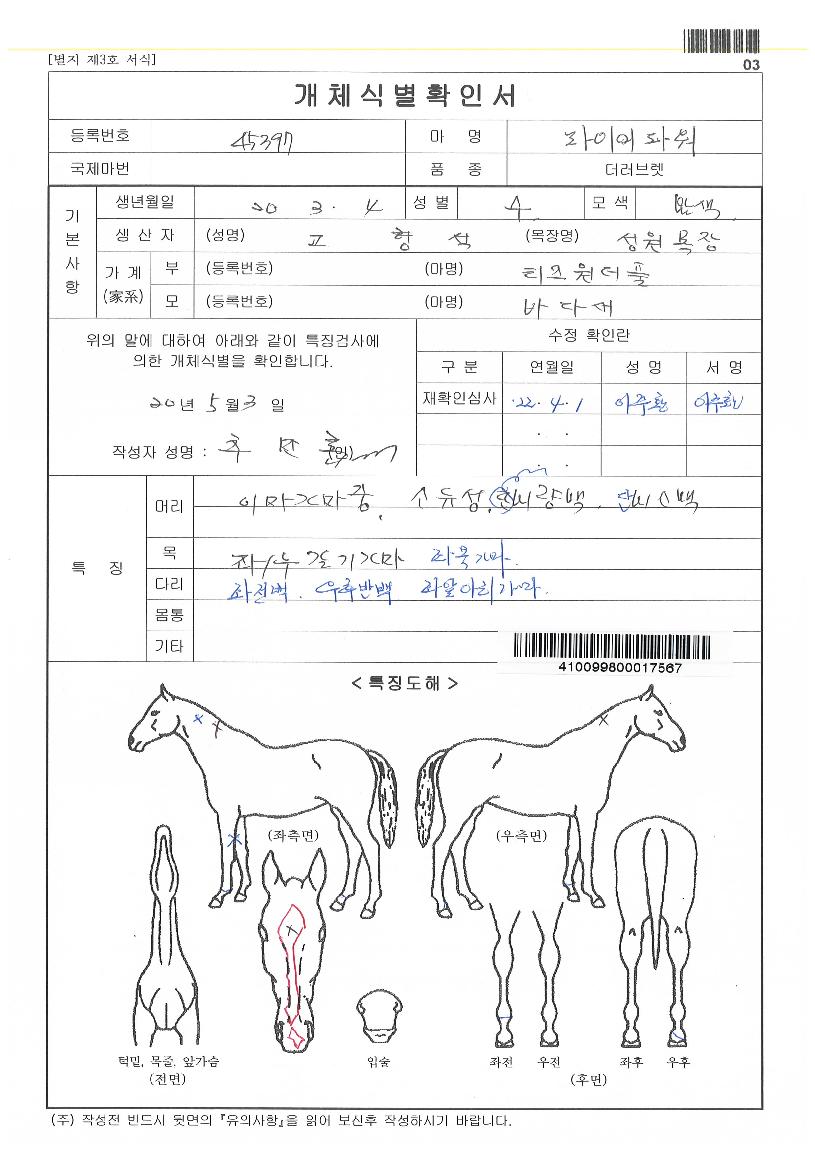 03
[별지 제3호 서식]
개체식별확인서
등록번호 45397 마 명 라이의파워
국제마번 품 종 더러브렛
기본사항
생년월일 20 3. 4 성별 수 모색
생산자 (성명) 고 형 석 (목장명) 성원목장
가계 (家系) 부 (등록번호) (마명) 티즈원더풀
모 (등록번호) (마명) 바다새
위의 말에 대하여 아래와 같이 특징검사에
의한 개체식별을 확인합니다.
20년 5월 3일
작성자 성명 :
수정 확인란
구 분 연월일 성 명 서 명
재확인심사 '22. 4. 1 이주환 이주환
특 징
머리 이마가마중. 소유성
목 좌/우 갈기가마 좌목가마.
다리 좌전백. 우후반백 좌앞다리가마.
몸통
기타
410099800017567
< 특징도해 >
(좌측면) (우측면)
턱밑, 목줄, 앞가슴 입술 좌전 우전 좌후 우후
(전면) (후면)
(주) 작성전 반드시 뒷면의 『유의사항』을 읽어 보신후 작성하시기 바랍니다.